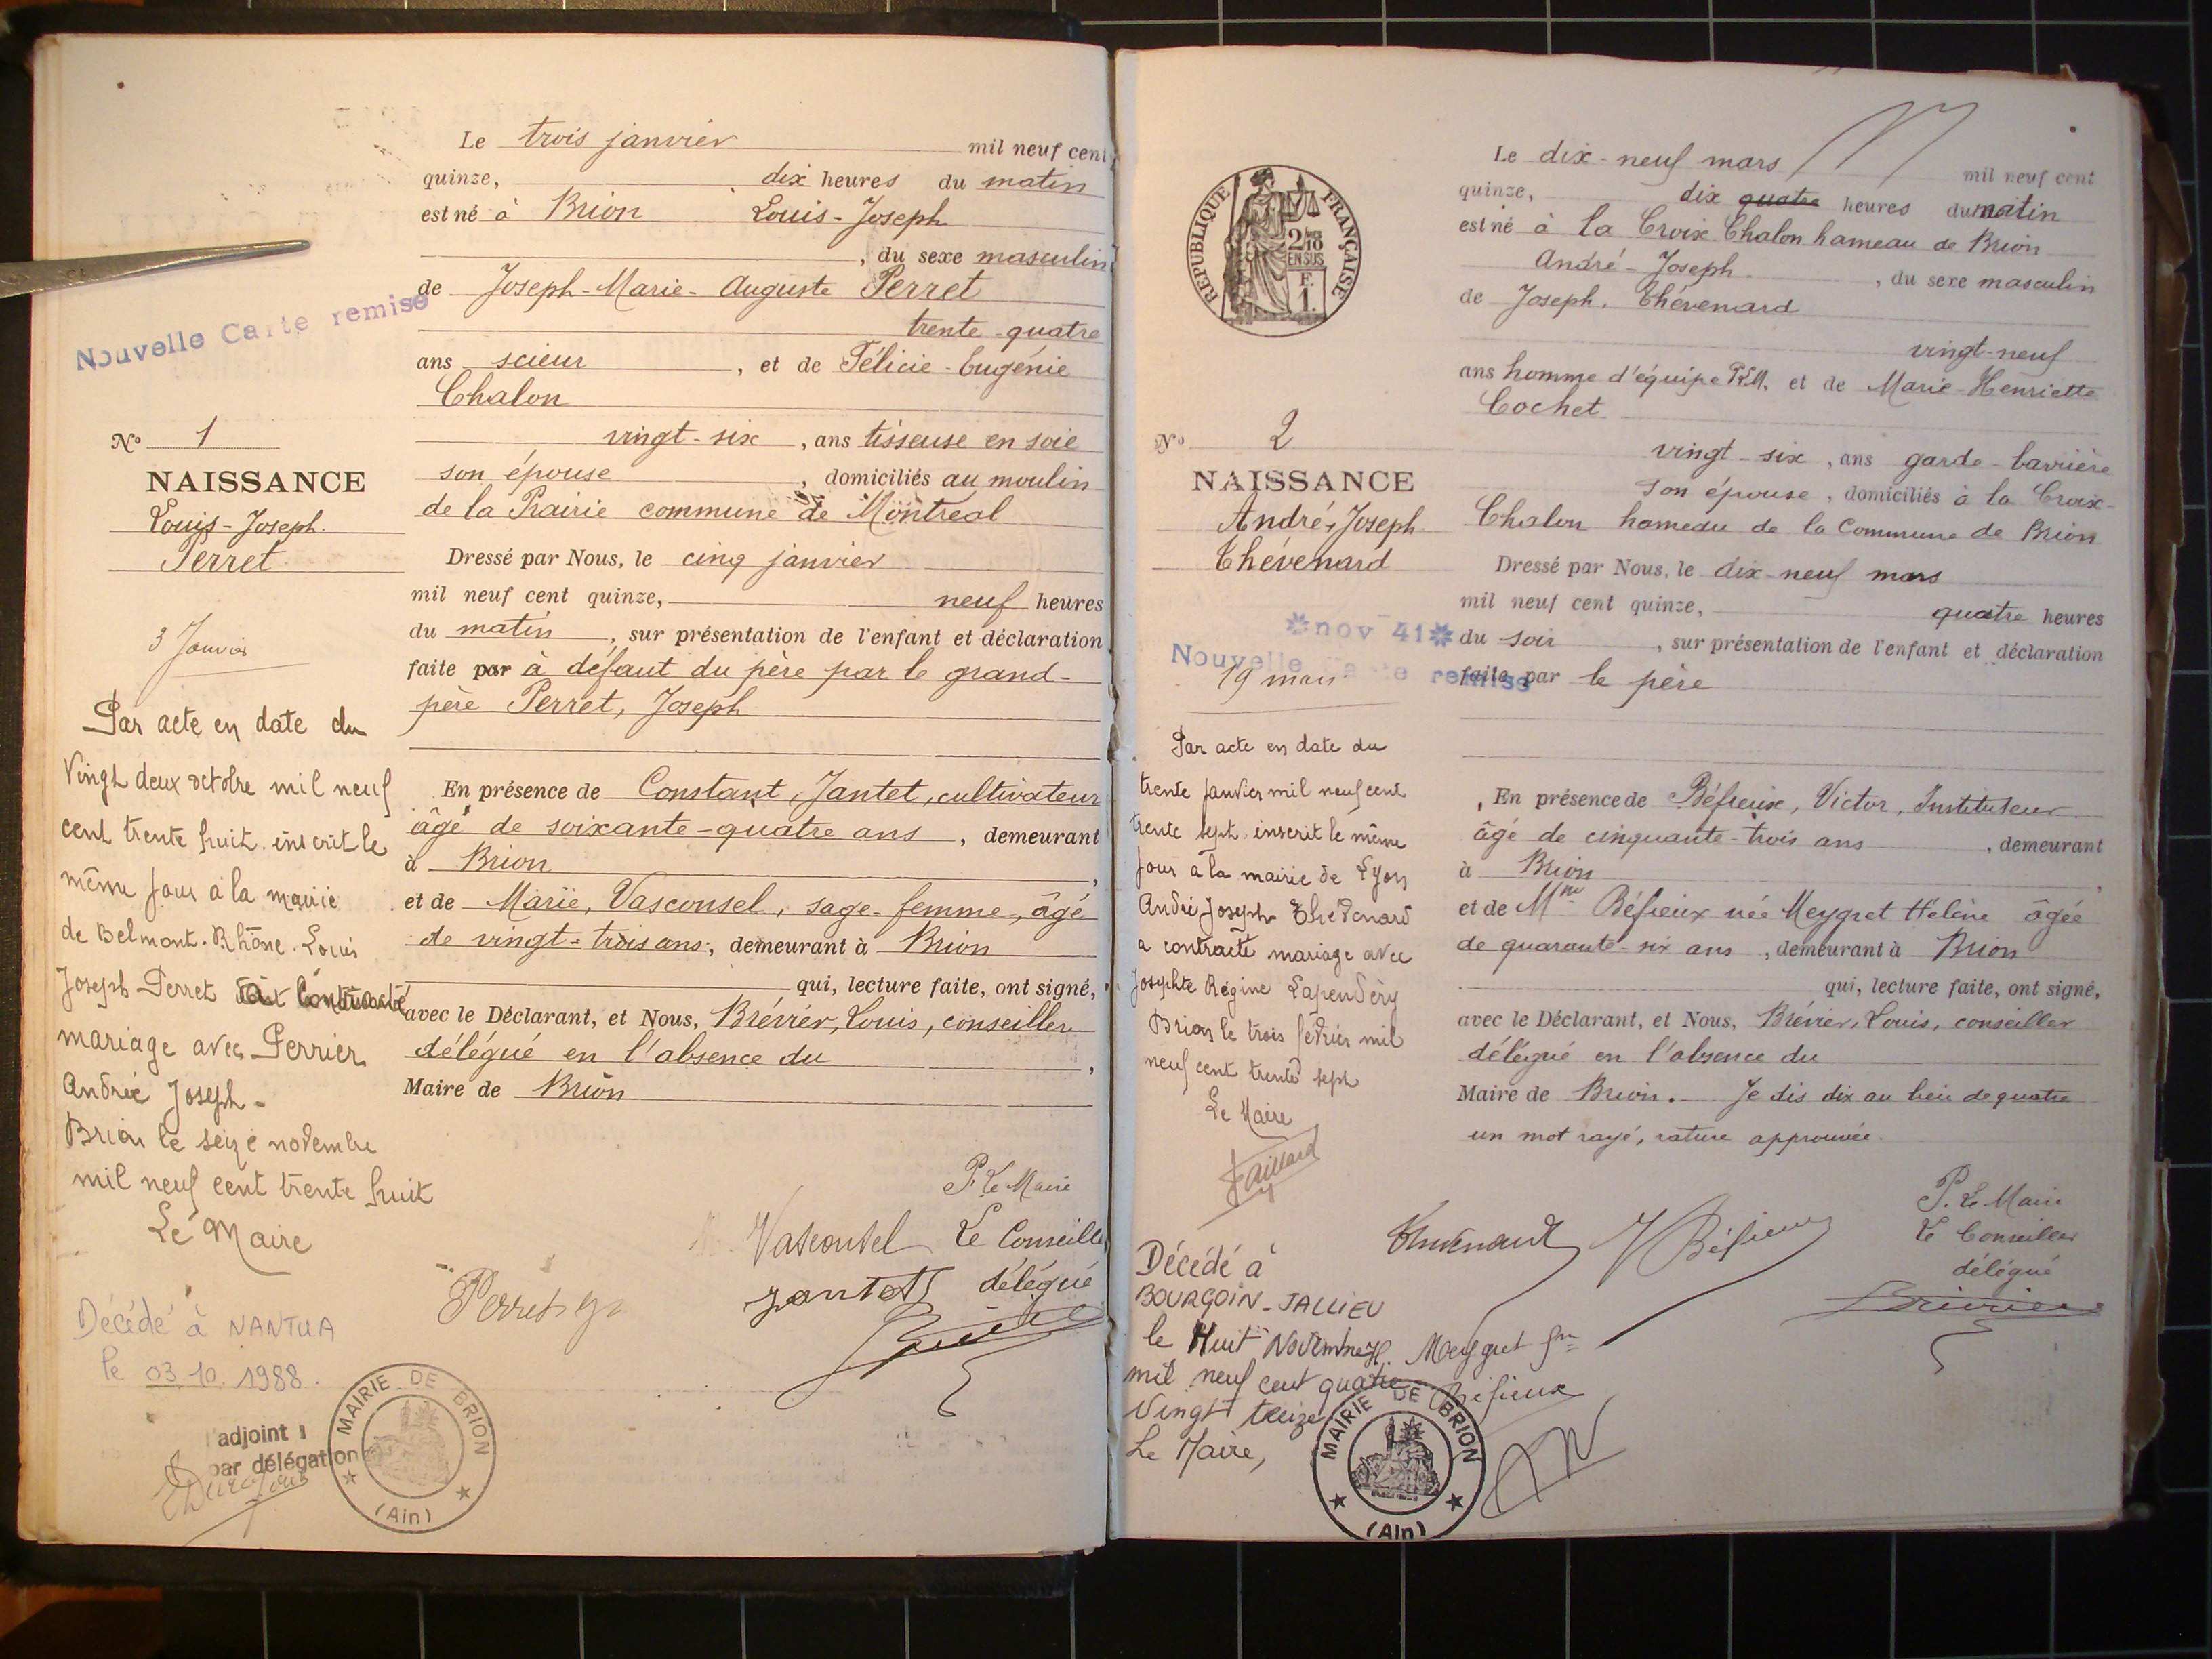 Le trois janvier mil neuf cent
quinze, dix heures du matin
est né à Brion Louis-Joseph
, du sexe masculin
de Joseph-Marie-Auguste Perret
trente-quatre
ans scieur, et de Félicie-Eugénie
Chalon
vingt-six, ans tisseuse en soie
son épouse, domiciliés au moulin
de la Prairie commune de Montréal
Dressé par Nous, le cinq janvier
mil neuf cent quinze, neuf heures
du matin, sur présentation de l'enfant et déclaration
faite par à défaut du père par le grand-
père Perret, Joseph
En présence de Constant, Jantet, cultivateur
âgé de soixante-quatre ans, demeurant
à Brion,
et de Marie, Vasconsel, sage-femme, âgé
de vingt-trois ans, demeurant à Brion
qui, lecture faite, ont signé,
avec le Déclarant, et Nous, Brévier, Louis, conseiller
délégué en l'absence du,
Maire de Brion
P. Le Maire
Vasconsel Le Conseiller
Perret jantet délégué
Nouvelle Carte remise
No 1
NAISSANCE
Louis-Joseph.
Perret
3 Janvier
Par acte en date du
Vingt deux octobre mil neuf
cent trente huit inscrit le
même jour à la mairie
de Belmont. Rhône. Louis
Joseph Perret a contracté
mariage avec Perrier
Andrée Joseph-
Brion le seize novembre
mil neuf cent trente huit
Le Maire
Décédé à NANTUA
le 03.10.1988.
adjoint
par délégation
MAIRIE DE BRION
(Ain)
Le dix-neuf mars mil neuf cent
quinze, dix quatre heures du matin
est né à la Croix Chalon hameau de Brion
André-Joseph, du sexe masculin
de Joseph, Thévenard
vingt-neuf
ans homme d'équipe P.L.M. et de Marie-Henriette
Cochet
vingt-six, ans garde-barrière
son épouse, domiciliés à la Croix-
Chalon hameau de la Commune de Brion
Dressé par Nous, le dix-neuf mars
mil neuf cent quinze, quatre heures
du soir, sur présentation de l'enfant et déclaration
faite par le père
En présence de Béfieux, Victor, Instituteur
âgé de cinquante-trois ans, demeurant
à Brion,
et de Mme Béfieux née Meygret Hélène âgée
de quarante-six ans, demeurant à Brion
qui, lecture faite, ont signé,
avec le Déclarant, et Nous, Brévier, Louis, conseiller
délégué en l'absence du
Maire de Brion. Je dis dix au lieu de quatre
un mot rayé, rature approuvée.
P. Le Maire
Le Conseiller
délégué
Thévenard V Béfieux
H. Meygret fme
Béfieux
REPUBLIQUE FRANÇAISE
2/10
EN SUS
F.
1.
No 2
NAISSANCE
André, Joseph
Thévenard
nov 41
Nouvelle Carte remise
19 mars
Par acte en date du
trente janvier mil neuf cent
trente sept inscrit le même
jour à la mairie de Lyon
André Joseph Thévenard
a contracté mariage avec
Josephte Régine Lapendéry
Brion le trois février mil
neuf cent trente sept
Le Maire
Décédé à
BOURGOIN-JALLIEU
le Huit Novembre
mil neuf cent quatre
Vingt treize
Le Maire,
MAIRIE DE BRION
(Ain)